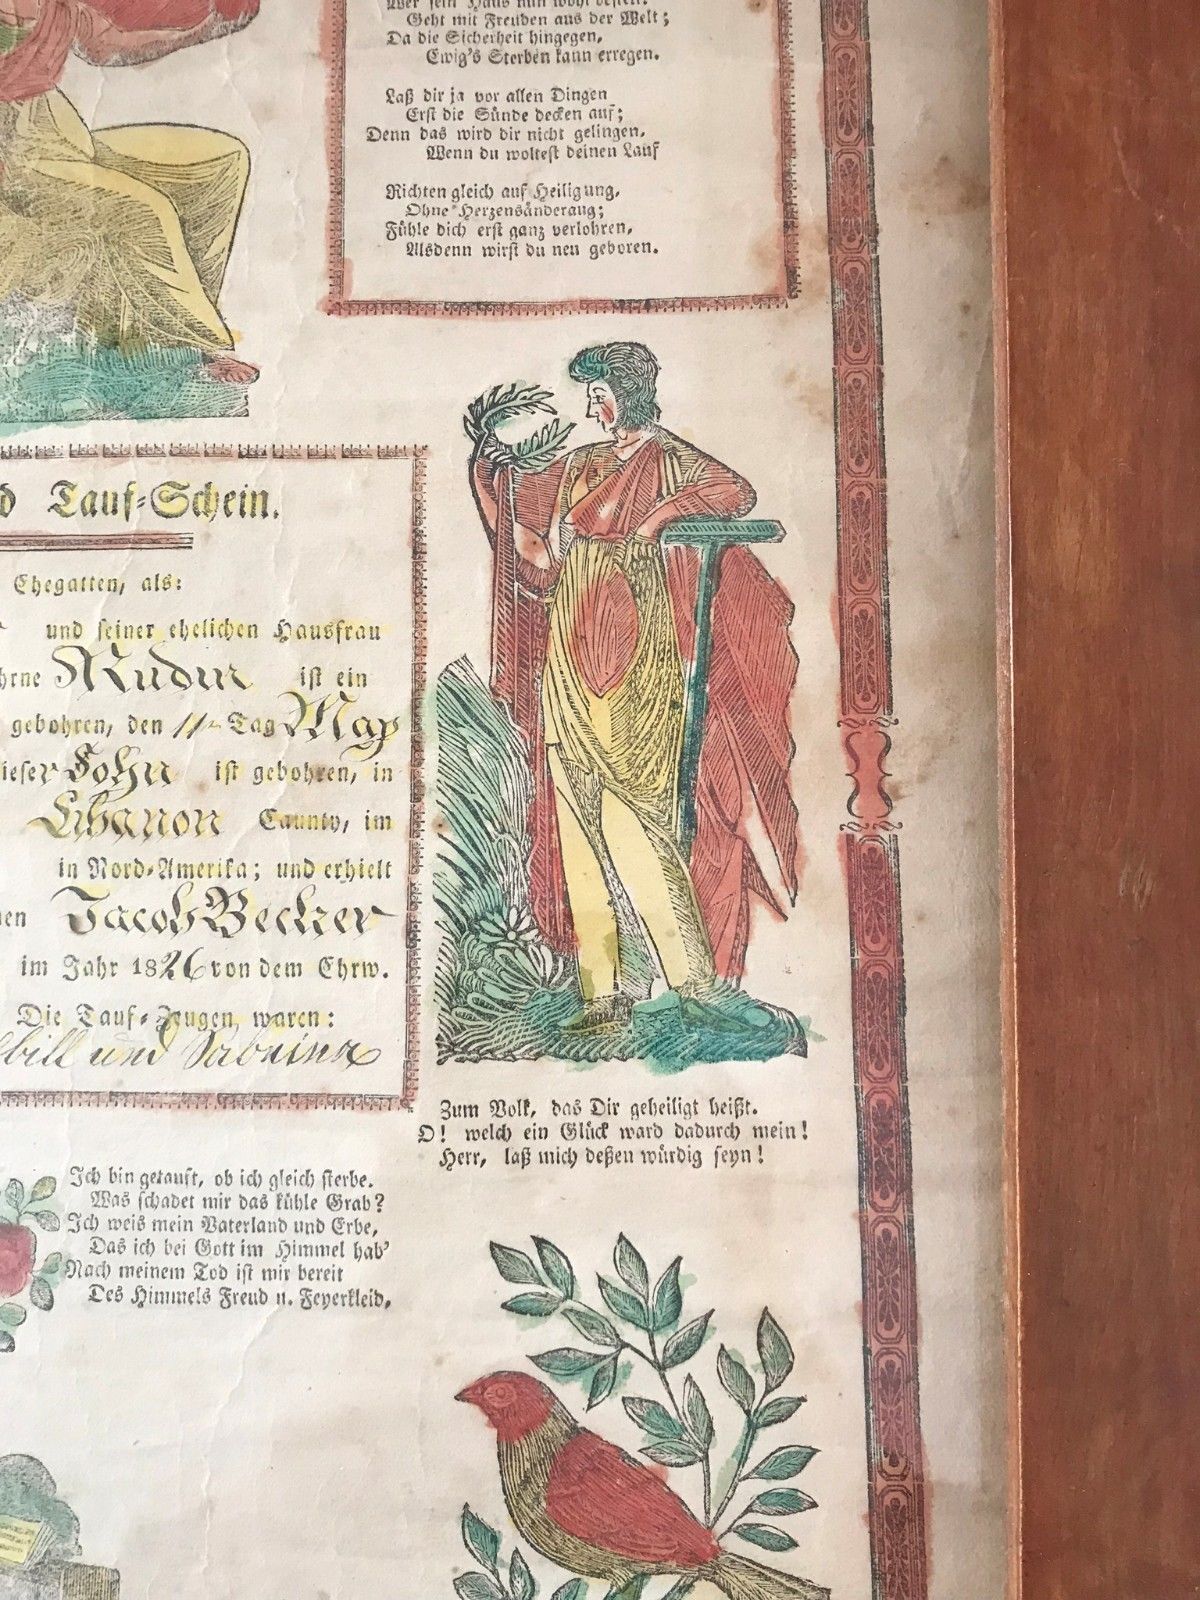 Wer sein Haus nun wohl bestell
Geht mit Freuden aus der Welt;
Da die Sicherheit hingegen,
Ewig's Sterben kann erregen.
Laß dir ja vor allen Dingen
Erst die Sünde decken auf;
Denn das wird dir nicht gelingen,
Wenn du woltest deinen Lauf
Richten gleich auf Heiligung,
Ohne Herzensänderung;
Fühle dich erst ganz verlohren,
Alsdenn wirst du neu geboren.
d Tauf-Schein.
Ehegatten, als:
und seiner ehelichen Hausfrau
hrne Rudin ist ein
gebohren, den 11ten Tag May
ieser Sohn ist gebohren, in
Libanon Caunty, im
in Nord-Amerika; und erhielt
en Jacob Becker
im Jahr 1826 von dem Ehrw.
Die Tauf-Zeugen waren:
bill und Sabaina
Zum Volk, das Dir geheiligt heißt.
O! welch ein Glück ward dadurch mein!
Herr, laß mich deßen würdig seyn!
Ich bin getauft, ob ich gleich sterbe.
Was schadet mir das kühle Grab?
Ich weis mein Vaterland und Erbe,
Das ich bei Gott im Himmel hab'
Nach meinem Tod ist mir bereit
Des Himmels Freud u. Feyerkleid,